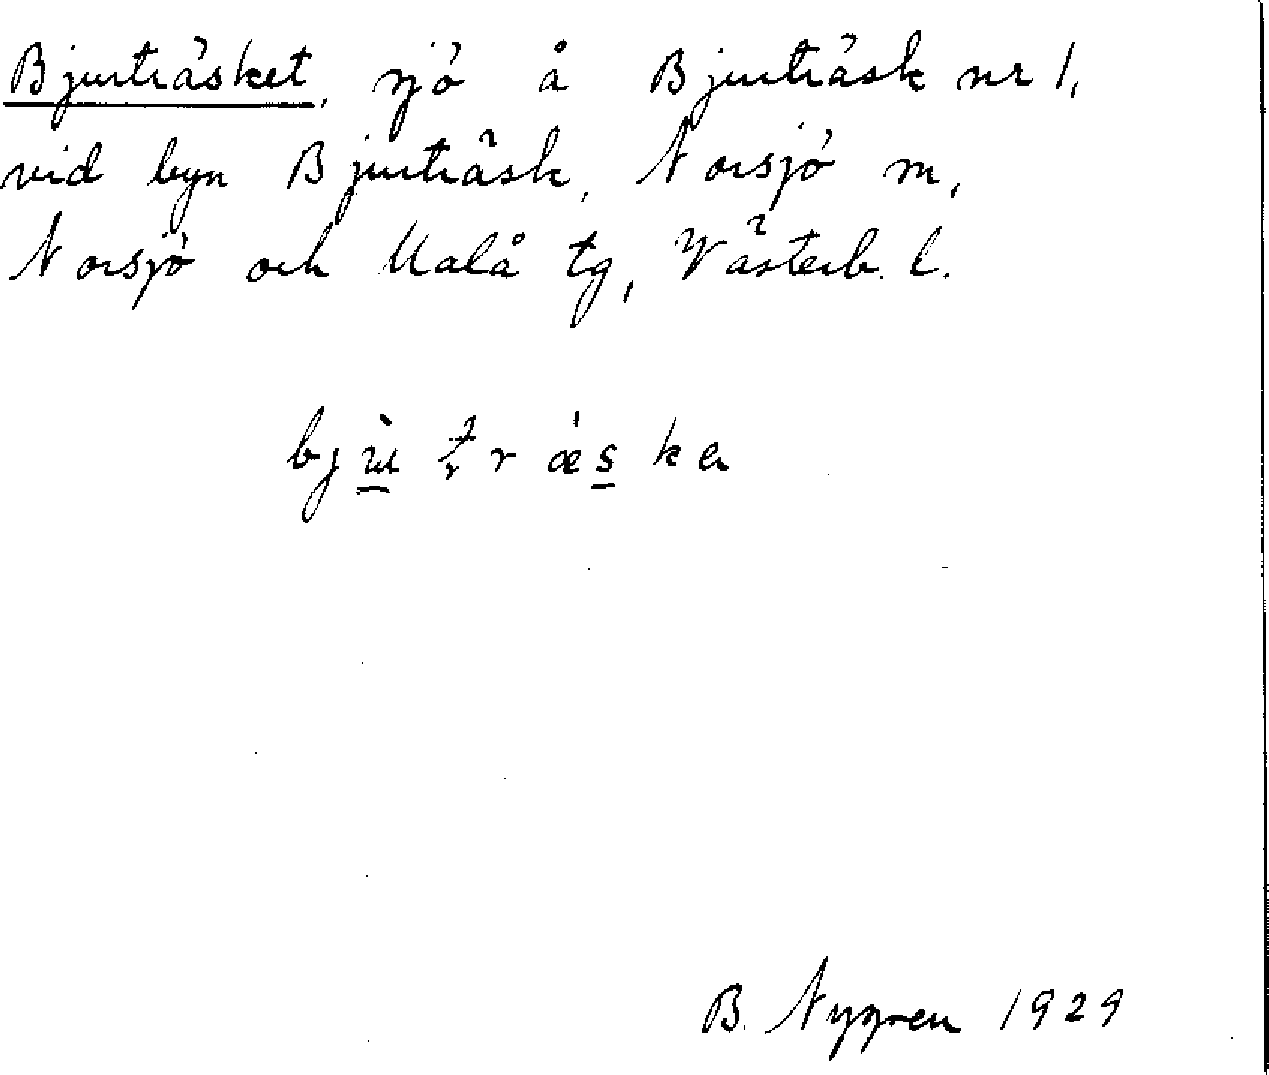 Bjurträsket, sjö å Bjurträsk nr 1,
vid byn Bjurträsk, Norsjö m,
Norsjö och Malå tg, Västerb. l.
B. Nygren 1929